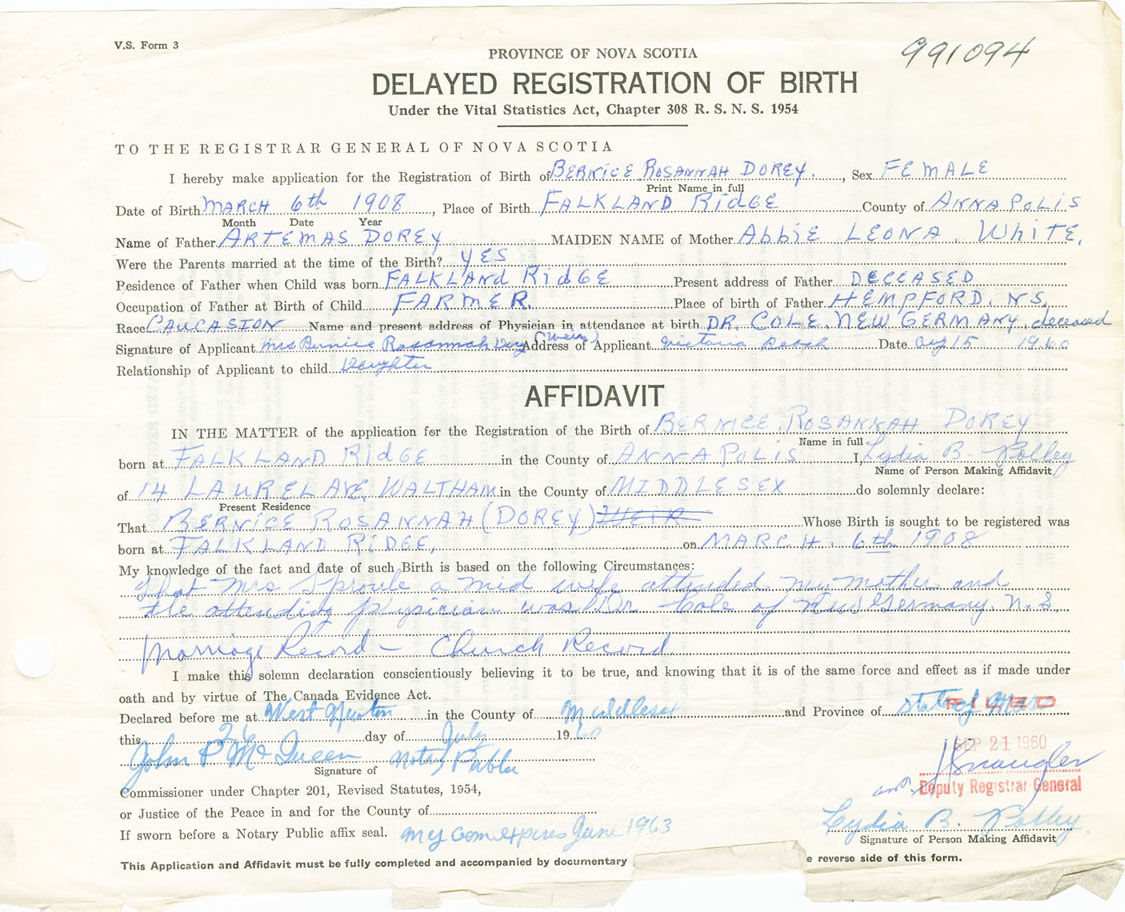 V.S. Form 3
991094
PROVINCE OF NOVA SCOTIA
DELAYED REGISTRATION OF BIRTH
Under the Vital Statistics Act, Chapter 308 R. S. N. S. 1954
TO THE REGISTRAR GENERAL OF NOVA SCOTIA
I hereby make application for the Registration of Birth of BERNICE ROSANNAH DOREY., Sex FEMALE
Print Name in full
Date of Birth MARCH 6th 1908, Place of Birth FALKLAND RIDGE County of ANNAPOLIS
Month Date Year
Name of Father ARTEMAS DOREY MAIDEN NAME of Mother Abbie LEONA. White.
Were the Parents married at the time of the Birth? YES
Residence of Father when Child was born FALKLAND RidGE Present address of Father DECEASED
Occupation of Father at Birth of Child FARMER. Place of birth of Father HEMPFORD. N.S.
Race CAUCASION Name and present address of Physician in attendance at birth DR. COLE. NEW GERMANY. deceased
Signature of Applicant Mrs Bernice Rosannah Address of Applicant Victoria Beach Date Aug 15 1960
Relationship of Applicant to child Daughter
AFFIDAVIT
IN THE MATTER of the application for the Registration of the Birth of BERNICE ROSANNAH DOREY
Name in full
born at FALKLAND RIdGE in the County of ANNAPOLIS I, Lydia B. Polley
Name of Person Making Affidavit
of 14 LAUREL AVE. WALTHAM in the County of MIDDLESEX do solemnly declare:
Present Residence
That BERNICE ROSANNAH (DOREY) WEIR Whose Birth is sought to be registered was
born at FALKLAND RIDGE, on MARCH. 6th 1908
My knowledge of the fact and date of such Birth is based on the following Circumstances:
That Mrs Sproule a mid wife attended my mother and
the attending physician was Dr Cole of New Germany. N.S
Marriage Record – Church Record
I make this solemn declaration conscientiously believing it to be true, and knowing that it is of the same force and effect as if made under
oath and by virtue of The Canada Evidence Act.
Declared before me at West Newton in the County of Middlesex and Province of State of Mass
FILED
this 26 day of July 1960
SEP 21 1960
John P McQueen Notary Public
Signature of
Deputy Registrar General
Commissioner under Chapter 201, Revised Statutes, 1954,
or Justice of the Peace in and for the County of
If sworn before a Notary Public affix seal. My Com expires June 1963
Lydia B. Polley
Signature of Person Making Affidavit
This Application and Affidavit must be fully completed and accompanied by documentary
e reverse side of this form.